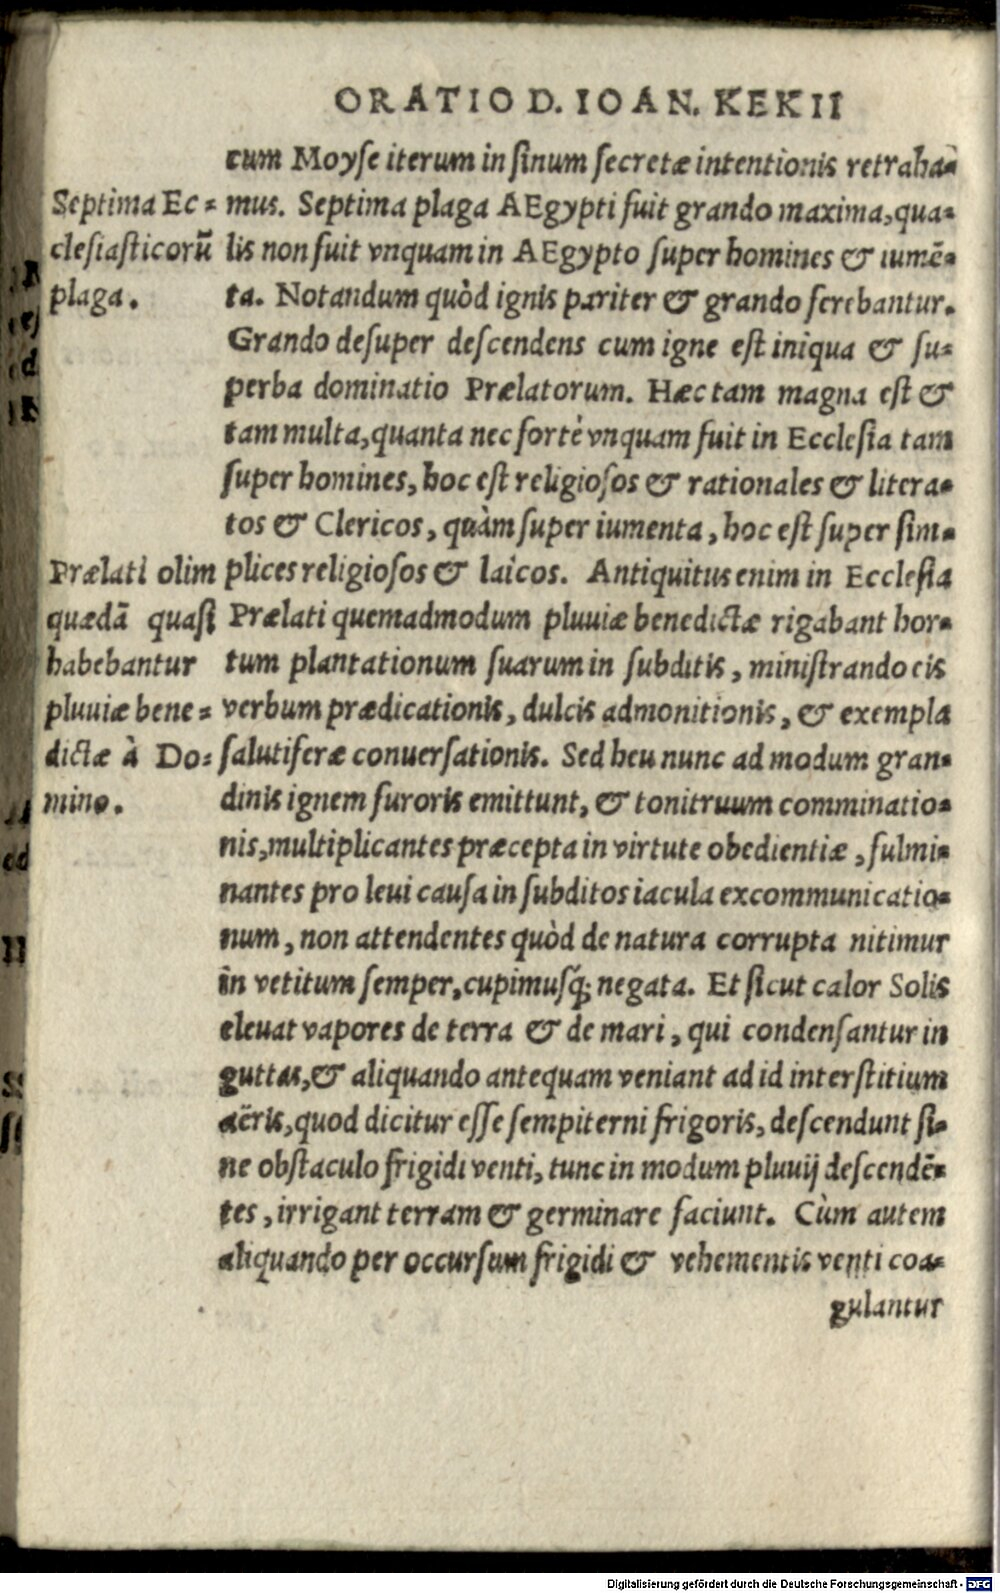 ORATIO D. IOAN. KEKII
cum Moyſe iterum in ſinum ſecretæ intentionis retraha-
mus. Septima plaga AEgypti fuit grando maxima, qua-
lis non fuit vnquam in AEgypto ſuper homines & iumē-
ta. Notandum quòd ignis pariter & grando ferebantur.
Grando deſuper deſcendens cum igne eſt iniqua & ſu-
perba dominatio Prælatorum. Hæc tam magna eſt &
tam multa, quanta nec fortè vnquam fuit in Eccleſia tam
ſuper homines, hoc eſt religioſos & rationales & litera-
tos & Clericos, quàm ſuper iumenta, hoc eſt ſuper ſim-
plices religioſos & laicos. Antiquitus enim in Eccleſia
Prælati quemadmodum pluuiæ benedictæ rigabant hor-
tum plantationum ſuarum in ſubditis, miniſtrando eis
verbum prædicationis, dulcis admonitionis, & exempla
ſalutiferæ conuerſationis. Sed heu nunc ad modum gran-
dinis ignem furoris emittunt, & tonitruum comminatio-
nis, multiplicantes præcepta in virtute obedientiæ, fulmi-
nantes pro leui cauſa in ſubditos iacula excommunicatio-
num, non attendentes quòd de natura corrupta nitimur
in vetitum ſemper, cupimuſq; negata. Et ſicut calor Solis
eleuat vapores de terra & de mari, qui condenſantur in
guttas, & aliquando antequam veniant ad id interſtitium
aëris, quod dicitur eſſe ſempiterni frigoris, deſcendunt ſi-
ne obſtaculo frigidi venti, tunc in modum pluuij deſcendē-
tes, irrigant terram & germinare faciunt. Cùm autem
aliquando per occurſum frigidi & vehementis venti coa-
gulantur
Septima Ec-
cleſiaſticorū
plaga.
Prælati olim
quædā quaſi
habebantur
pluuiæ bene-
dictæ à Do-
mino.
Digitalisierung gefördert durch die Deutsche Forschungsgemeinschaft - DFG